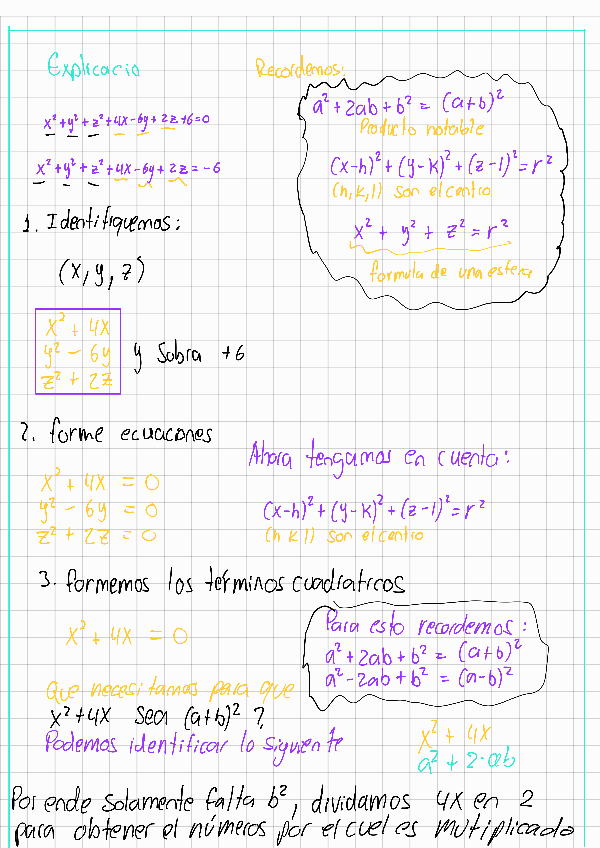 Explicacio
x² + y² + z² + 4x - 6y + 2z + 6 = 0
x² + y² + z² + 4x - 6y + 2z = -6
Recordemos:
a² + 2ab + b² = (a+b)²
Producto notable
(x-h)² + (y-k)² + (z-l)² = r²
(h,k,l) son el centro
x² + y² + z² = r²
formula de una esfera
1. Identifiquemos:
(x, y, z)
x² + 4x
y² - 6y
z² + 2z
y sobra +6
2. forme ecuaciones
x² + 4x = 0
y² - 6y = 0
z² + 2z = 0
Ahora tengamos en cuenta:
(x-h)² + (y-k)² + (z-l)² = r²
(h k l) son el centro
3. formemos los términos cuadraticos
x² + 4x = 0
Para esto recordemos:
a² + 2ab + b² = (a+b)²
a² - 2ab + b² = (a-b)²
Que necesitamos para que
x² + 4x sea (a+b)² ?
Podemos identificar lo siguiente
x² + 4x
a² + 2·ab
Por ende solamente falta b², dividamos 4x en 2
para obtener el números por el cuel es mutiplicado